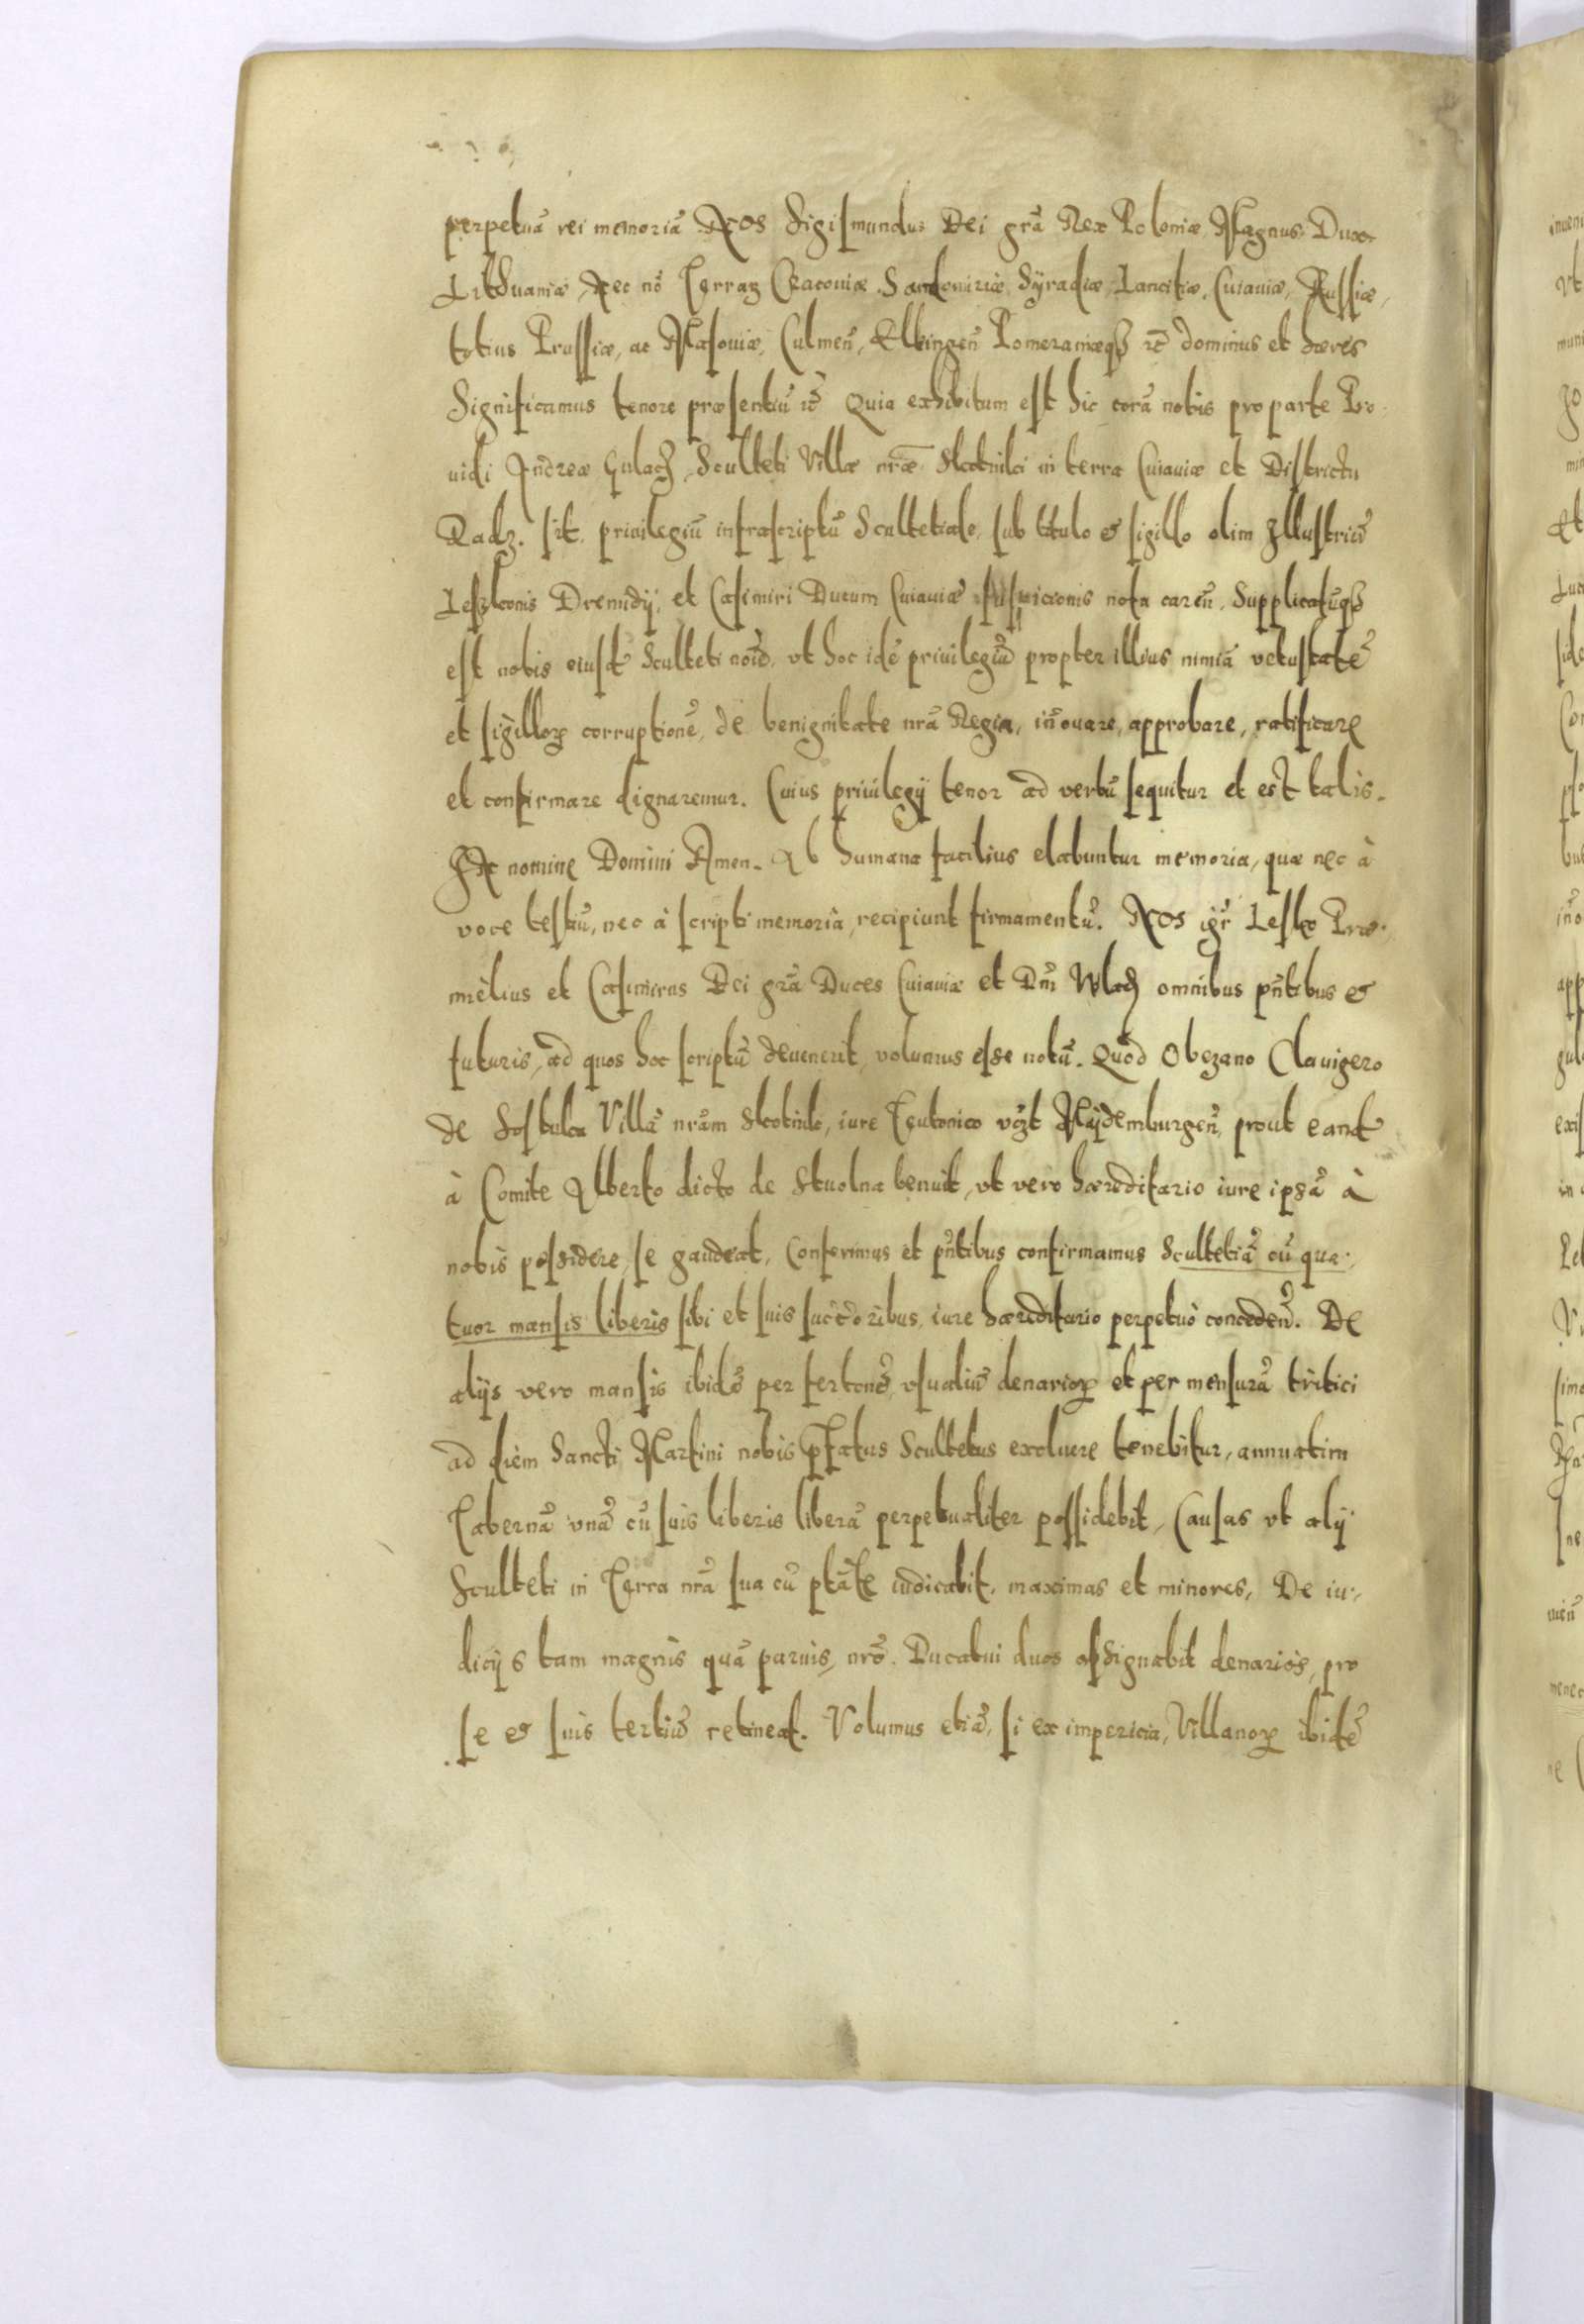 perpetuā rei memoriā Nos Sigismundus Dei grā Rex Poloniæ Magnus Dux
Lithuaniæ, Nec nō Terraꝝ Cracoviæ Sandomiriæ Syradiæ Lancitiæ, Cuiaviæ, Russiæ,
totius Prussiæ, ac Masoviæ, Culmeñ, Elbingeñ Pomeraniæqꝫ ꝛc̄ dominus et hæres
Significamus tenore præsentiū ꝛc̄ Quia exhibitum est hic corā nobis pro parte Pro
uidi Andreæ Sculteti Villæ nrǣ Slotniki in terra Cuiaviæ et Districtu
Radz. sit. priuilegiū infrascriptū Scultetiale, sub titulo & sigillo olim Illustriū
Leszkonis Premidij, et Casimiri Ducum Cuiaviæ suspicionis nota careñ. Supplicatūqꝫ
est nobis eiusd Sculteti noīe, vt hoc idē priuilegiū propter illius nimiā vetustatē
et sigilloꝝ corruptionē, de benignitate nrā Regia, iñouare, approbare, ratificare
et confirmare dignaremur. Cuius priuilegij tenor ad verbū sequitur et est talis.
IN nomine Domini Amen. Ab humana facilius elabuntur memoria, quæ nec à
voce testiū, nec à scripti memoria, recipiunt firmamentū. NOS igr̄ Lesko Præ
mislius et Casimirus Dei grā Duces Cuiaviæ et Dn̄i Wlad omnibus pn̄tibus &
futuris, ad quos hoc scriptū deuenerit, volumus esse notū. Quod Obezano Clauigero
de Villā nrām Slotniki, iure Teutonico vꝫt Maÿdemburgeñ, prout eand
à Comite Alberto dicto de tenuit, vt vero hæreditario iure ipsā à
nobis possidere, se gaudeat, Conferimus et pn̄tibus confirmamus Scultetiā cū qua-
tuor mansis liberis sibi et suis succ̄oribus, iure hæreditario perpetuò concedeñ. De
alijs vero mansis ibidē per fertonē vsualiū denarioꝝ et per mensurā tritici
ad diem Sancti Martini nobis p̄fatus Scultetus exoluere tenebitur, annuatim
Tabernā vnā cū suis liberis liberā perpetualiter possidebit, Causas vt alij
Sculteti in Terra nrā sua cū p̄tāte iudicabit, maximas et minores, De iu-
dicijs tam magnis quā paruis, nrō Ducatui duos assignabit denarios, pro
se & suis tertiū retineat. Volumus etiā, si ex impericia, Villanoꝝ ibidē